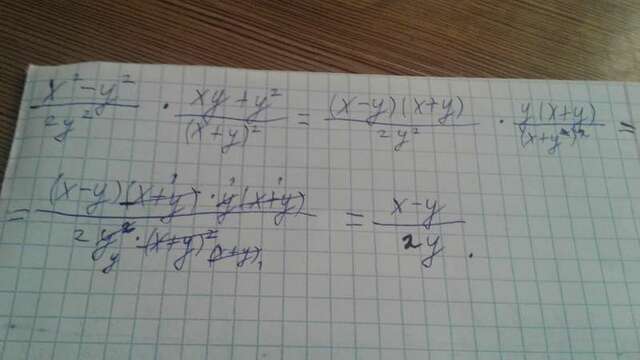 x² - y² / 2y² · xy + y² / (x+y)² = (x-y)(x+y) / 2y² · y(x+y) / (x+y)² =
= (x-y)(x+y) · y(x+y) / 2y² · (x+y)² = x-y / 2y .
y (x+y)